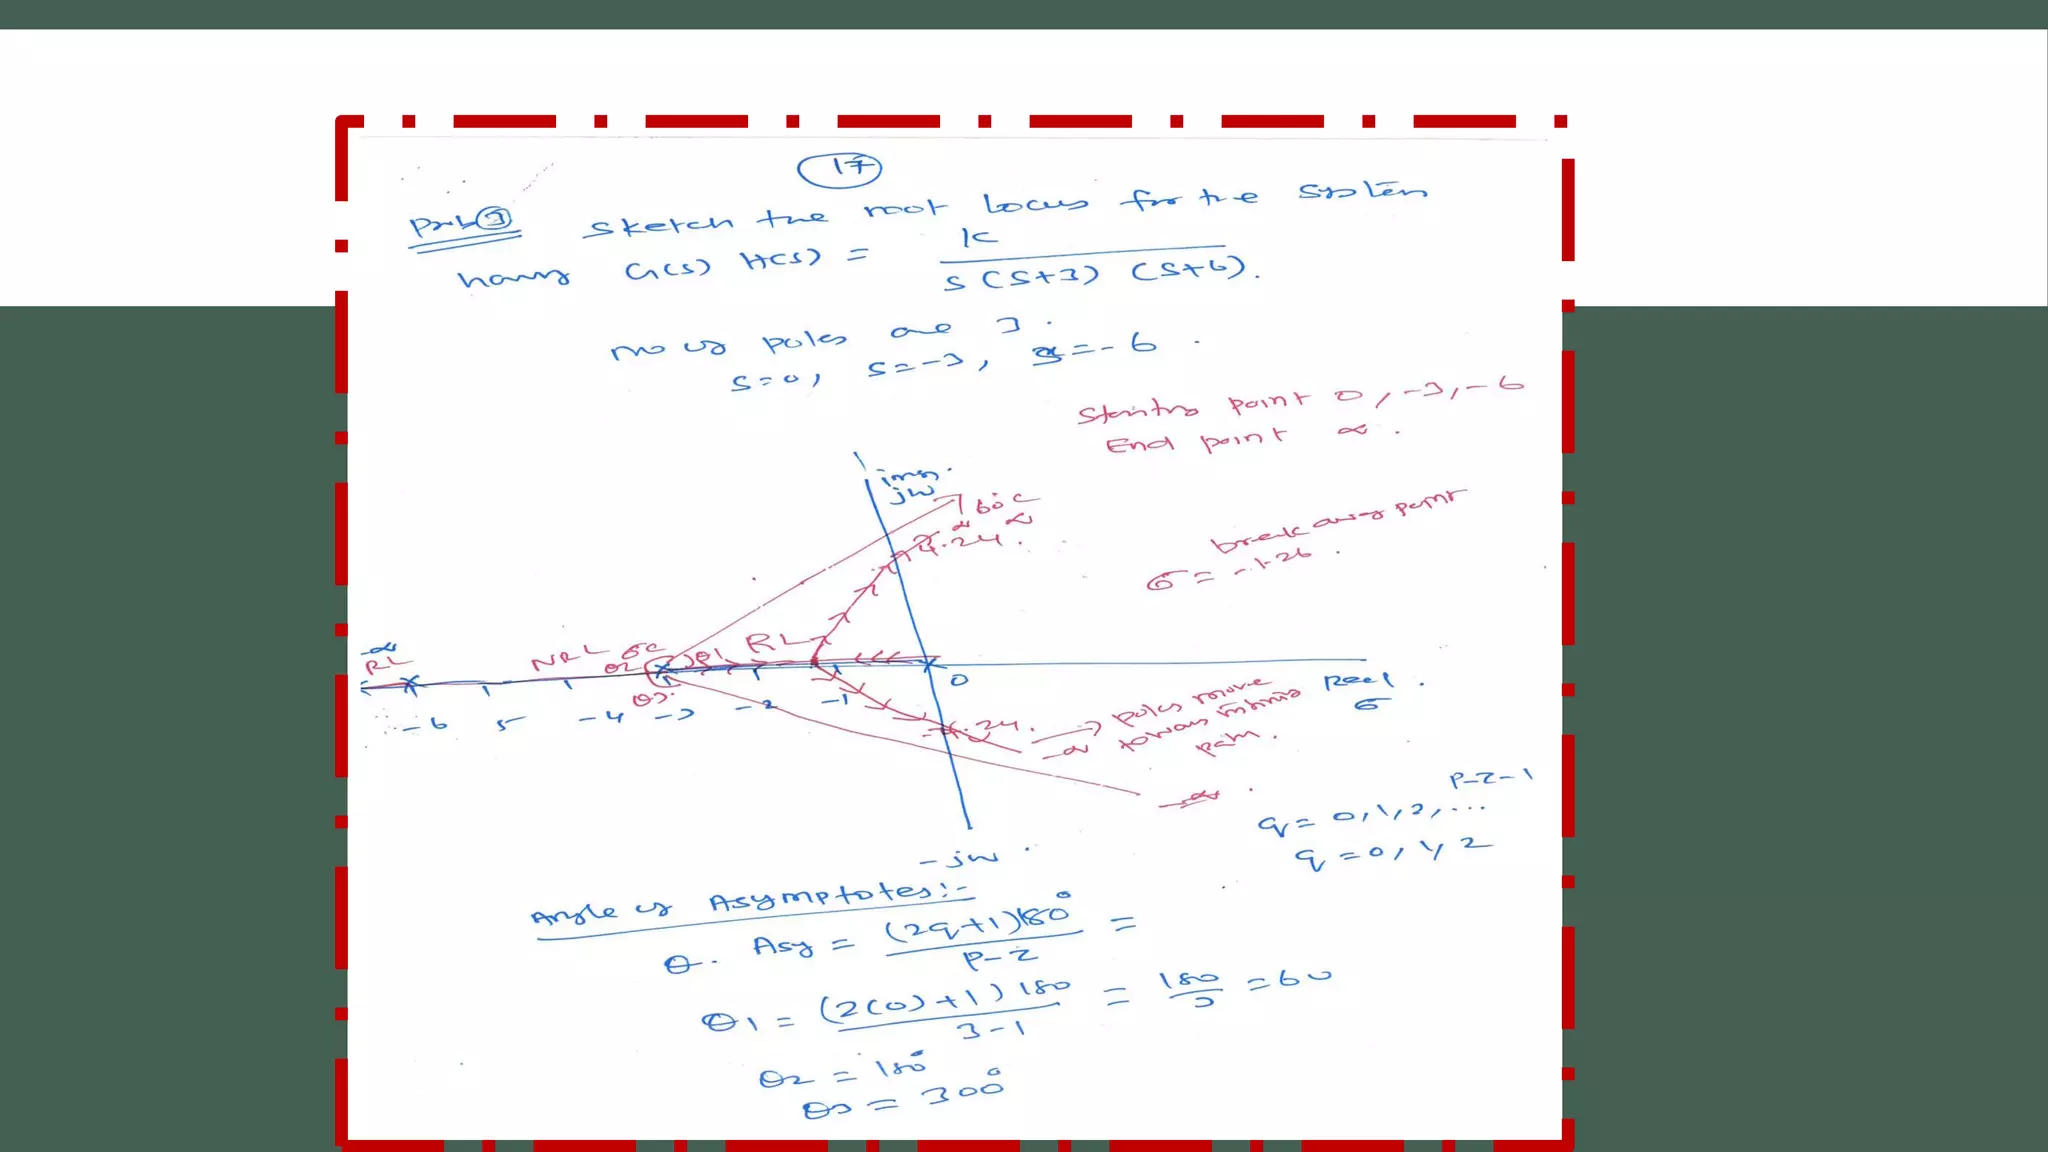 17
Prob 3 Sketch the root Locus for the system
having G(s) H(s) = K / s(s+3) (s+6).
no of poles are 3.
s=0, s=-3, s=-6.
Starting point 0, -3, -6
End point ∝.
img.
jw
60°c
∝ ∝
4.24.
break away point
σ = -1.26.
-∝
RL
NRL σc
θ2 θ1 RL
θ3.
-6 5 -4 -3 -2 -1 0
Real
σ
-4.24.
-∝
poles move
towards infinite
path.
-∝.
-jw
P-Z-1
q = 0, 1, 2, ...
q = 0, 1, 2
Angle of Asymptotes:-
θ. Asy = (2q+1)180° / P-Z =
θ1 = (2(0)+1) 180 / 3-1 = 180 / 3 = 60
θ2 = 180°
θ3 = 300°